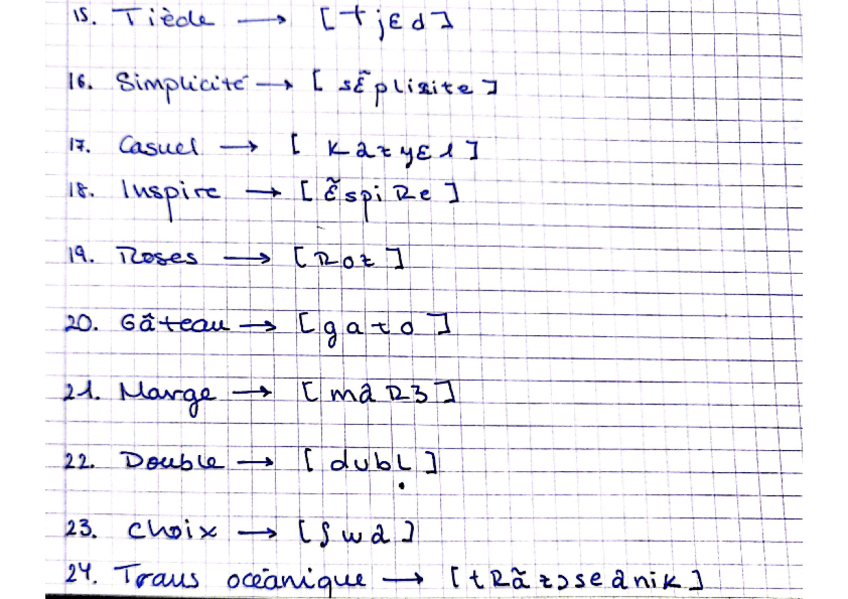 15. Tiède → [tjɛd]
16. Simplicité → [sɛ̃plisite]
17. Casuel → [kazyɛl]
18. Inspire → [ɛ̃spiRe]
19. Roses → [Roz]
20. Gâteau → [gato]
21. Marge → [maRʒ]
22. Double → [dubl]
23. choix → [ʃwa]
24. Trans océanique → [tRãzɔseanik]